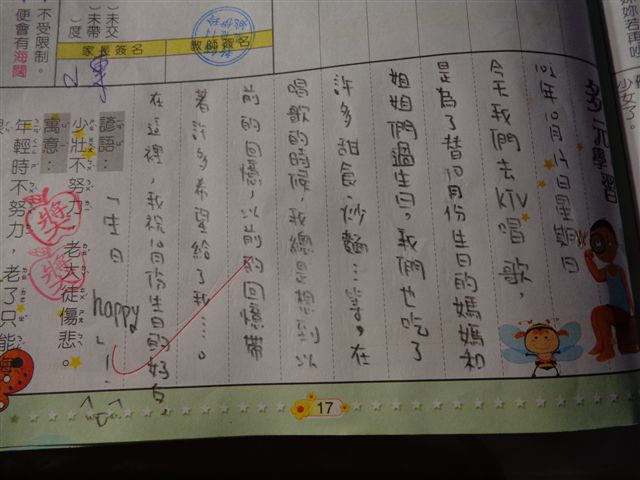 少女了。
多元學習
101年10月14日星期日
今天我們去KTV唱歌,
是為了替10月份生日的媽媽和
姐姐們過生日,我們也吃了
許多甜食、炒麵…等,在
唱歌的時候,我總是想到以
前的回憶,以前的回憶帶
著許多希望給了我…。
在這裡,我祝10月份生日的好友,
「生日happy」!!
教師簽名
家長簽名
諺語:
少壯不努力,老大徒傷悲。
寓意:
年輕時不努力,老了只能
獎
獎
)未交
)未帶
)度
不受限制。
便會有海闊
17